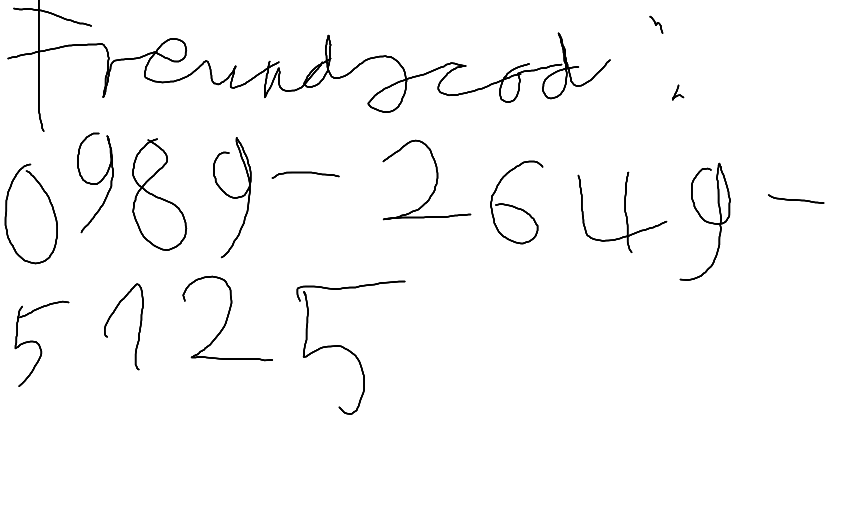 Freundscod:
0989-2649-
5125